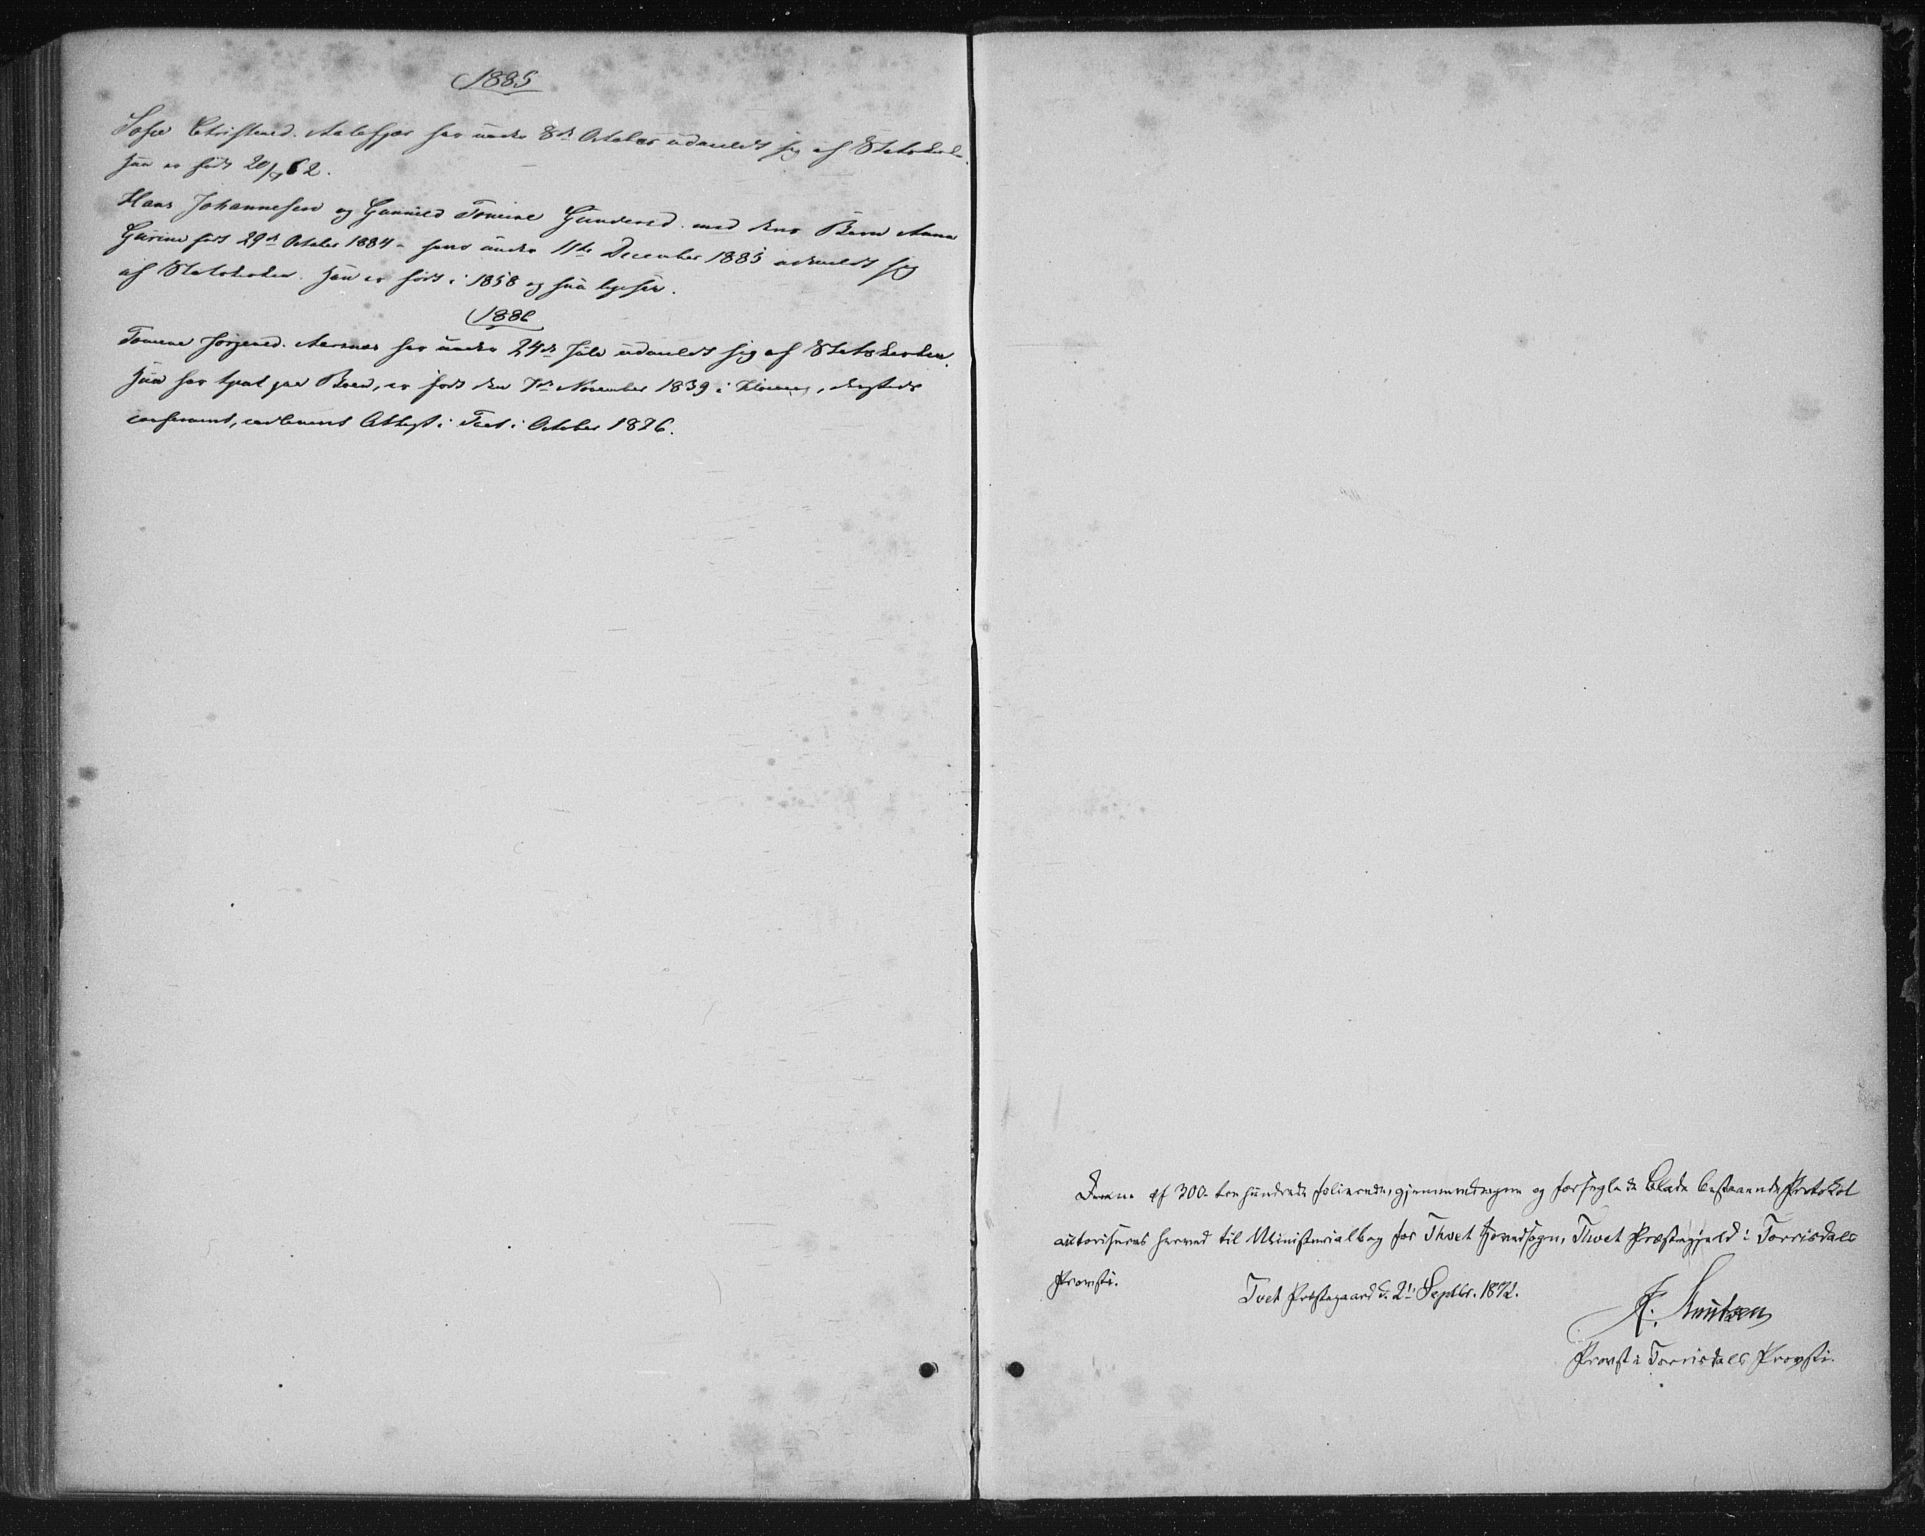 1885
Sofie Christensd. Aalefjær har under 8de October udmeldt sig af Statskirken.
Hun er født 20/9 62.
Hans Johannesen og Gunnild Tomine Gundersd. med deres Barn Anna
Gurine født 29de October 1884 - have under 11te December 1885 udmeldt sig
af Statskirken. Han er født i 1858 og hun ligesaa.
1886
Tomine Jørgensd. Aasnæs har under 24de Juli udmeldt sig af Statskirken.
Hun har tjent paa Boen, er født den 7de November 1839 i , dersteds
confirmeret, indleveret Attest i Tvet i October 1876.
Denne af 300 trehundrede folierede, gjennemdragne og forseglede Blade bestaaende Protokol
autoriseres herved til Ministerialbog for Thvet Hovedsogn, Thvet Præstegjeld i Torrisdals
Provsti.
Tvet Præstegaard d. 21 Septbr. 1872.
K. Knutzen
Provst i Torrisdals Provsti.